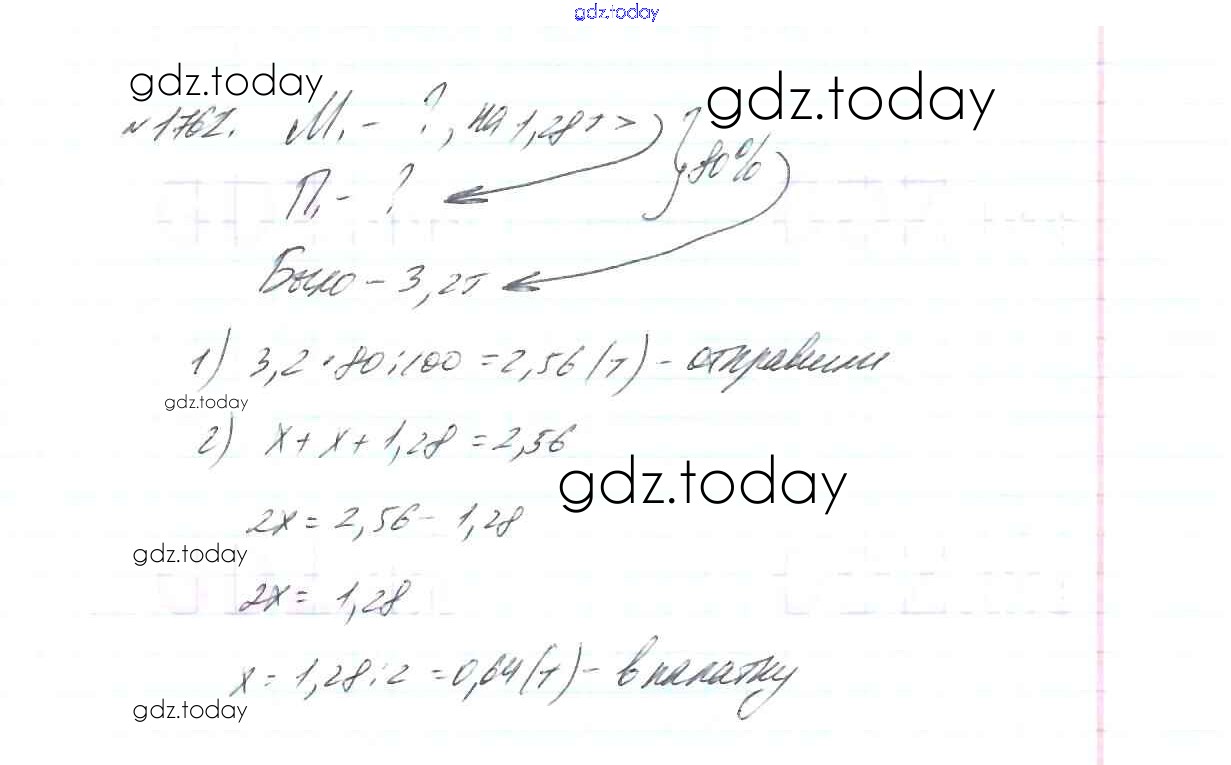 gdz.today
gdz.today
gdz.today
№1762. М. - ?, на 1,28т >
80%
П. - ?
Было - 3,2т
1) 3,2 · 80 : 100 = 2,56 (т) - отправили
gdz.today
2) х + х + 1,28 = 2,56
gdz.today
2х = 2,56 - 1,28
gdz.today
2х = 1,28
х = 1,28 : 2 = 0,64 (т) - в палатку
gdz.today